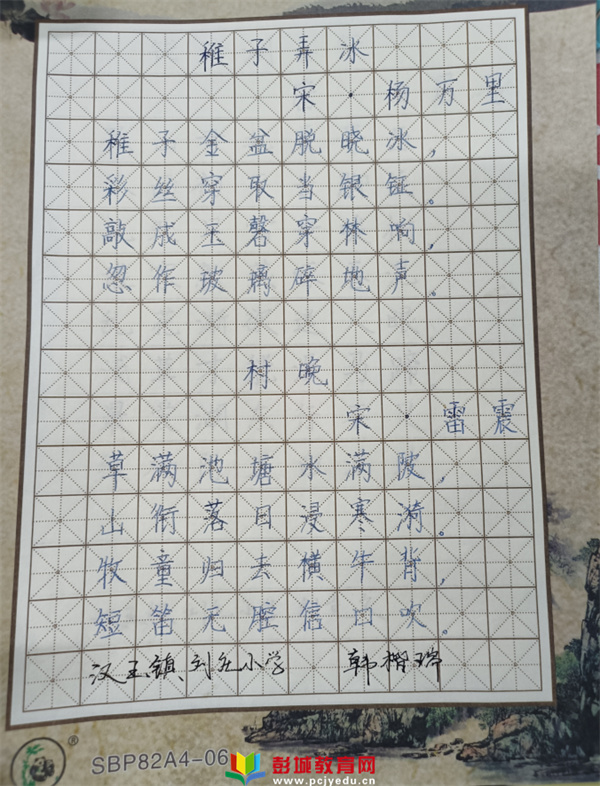 稚子弄冰
宋·杨万里
稚子金盆脱晓冰，
彩丝穿取当银钲。
敲成玉磬穿林响，
忽作玻璃碎地声。
村晚
宋·雷震
草满池塘水满陂，
山衔落日浸寒漪。
牧童归去横牛背，
短笛无腔信口吹。
汉王镇刘庄小学 韩楷瑞
SBP82A4-06
彭城教育网
www.pcjyedu.cn